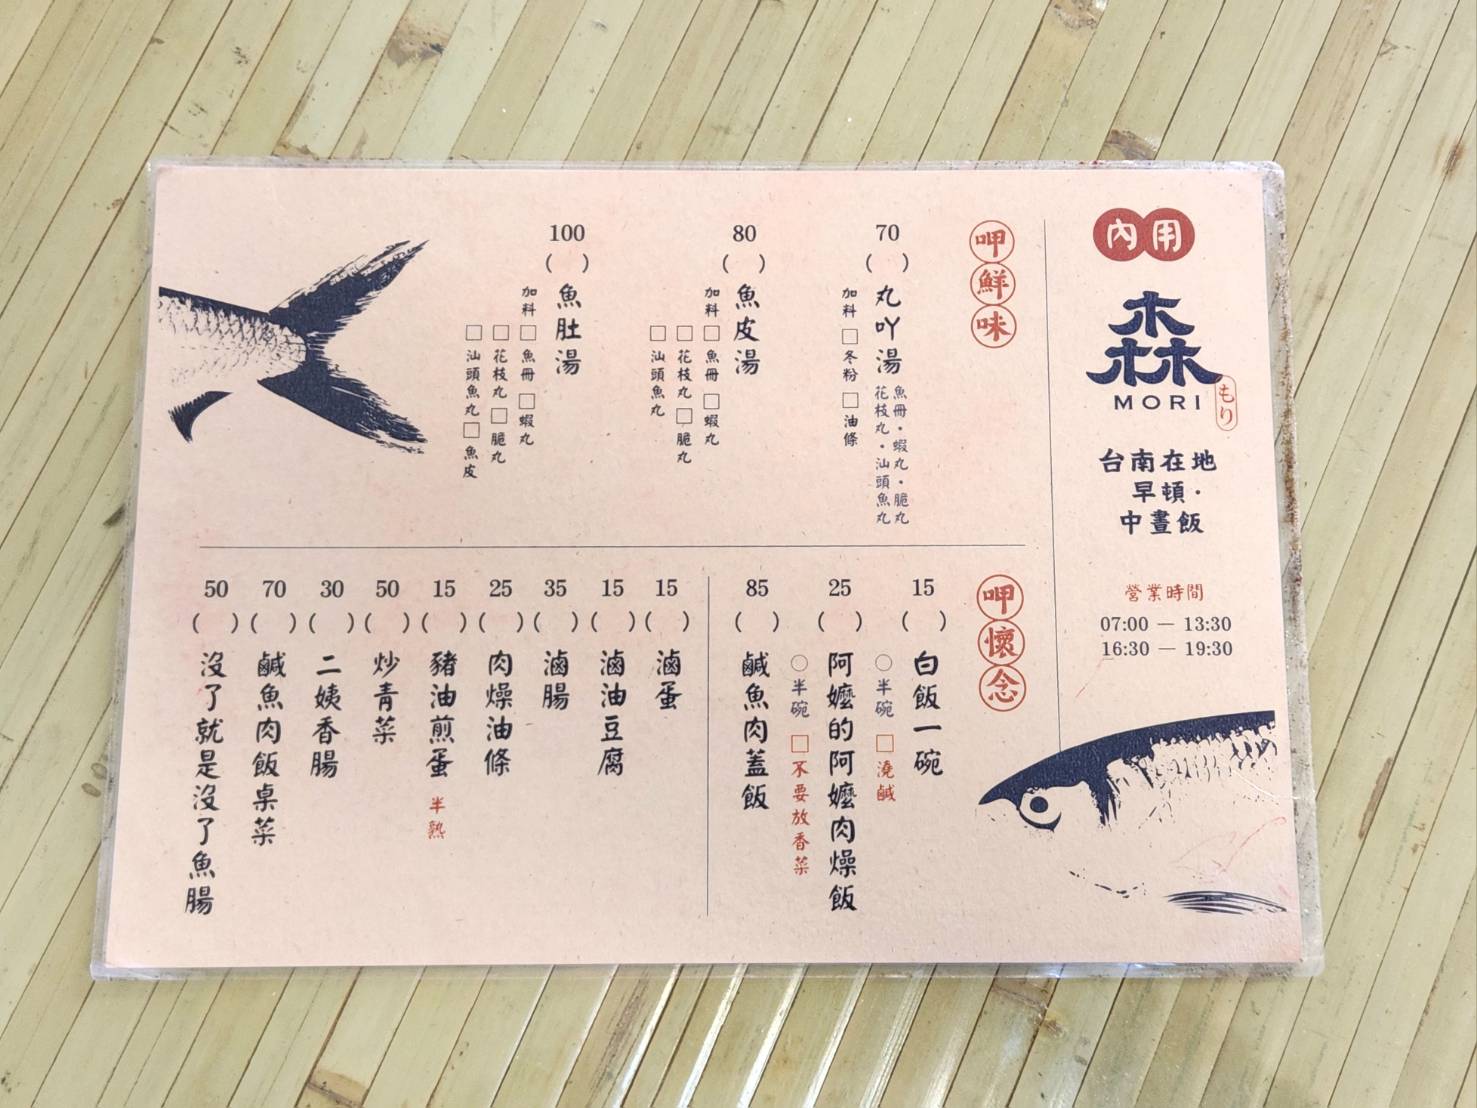 內用
森
MORI
もり
台南在地
早頓·
中晝飯
營業時間
07:00 — 13:30
16:30 — 19:30
呷鮮味
70
( )
丸吖湯
魚冊·蝦丸·脆丸
花枝丸·汕頭魚丸
加料 □冬粉 □油條
80
( )
魚皮湯
加料 □魚冊 □蝦丸
□花枝丸 □脆丸
□汕頭魚丸
100
( )
魚肚湯
加料 □魚冊 □蝦丸
□花枝丸 □脆丸
□汕頭魚丸 □魚皮
呷懷念
15
( )
白飯一碗
○半碗 □澆鹹
25
( )
阿嬤的阿嬤肉燥飯
○半碗 □不要放香菜
85
( )
鹹魚肉蓋飯
15
( )
滷蛋
15
( )
滷油豆腐
35
( )
滷腸
25
( )
肉燥油條
15
( )
豬油煎蛋 半熟
50
( )
炒青菜
30
( )
二姨香腸
70
( )
鹹魚肉飯桌菜
50
( )
沒了就是沒了魚腸